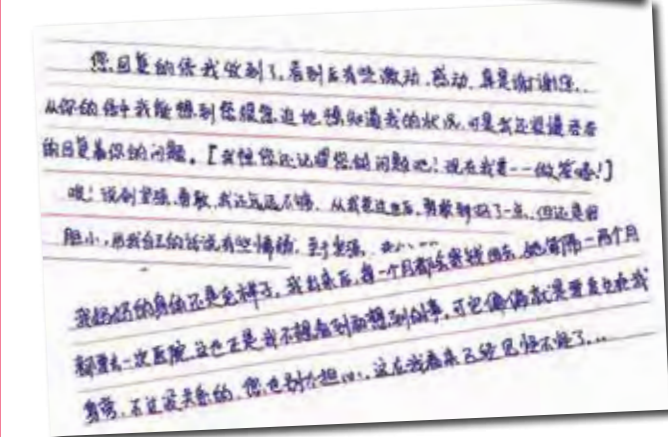 您回复的信我收到了,看到后有些激动、感动,真是谢谢您..
从你的信中我能想到您很急迫地想知道我的状况,可是我还要慢吞吞
的回复着你的问题。【我想您还记得您的问题吧!现在我要一一做答咯!】
哦!说到坚强、勇敢,我还远远不够,从我来这里后,勇敢到好了一点,但还是很
胆小,用我自己的话说有些懦弱,至于坚强,
我妈妈的身体还是老样子,我出来后,每一个月都会寄钱回去,她每隔一两个月
都要去一次医院,这也正是我不想看到而想到的事,可它偏偏就是要发生在我
身旁,不过没关系的,您也别太担心,这在我看来已经见怪不怪了...